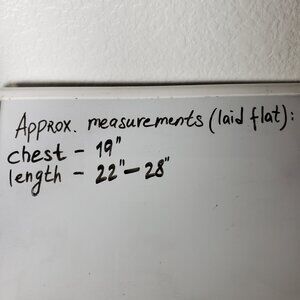 Approx. measurements (laid flat):
chest - 19"
length - 22"-28"